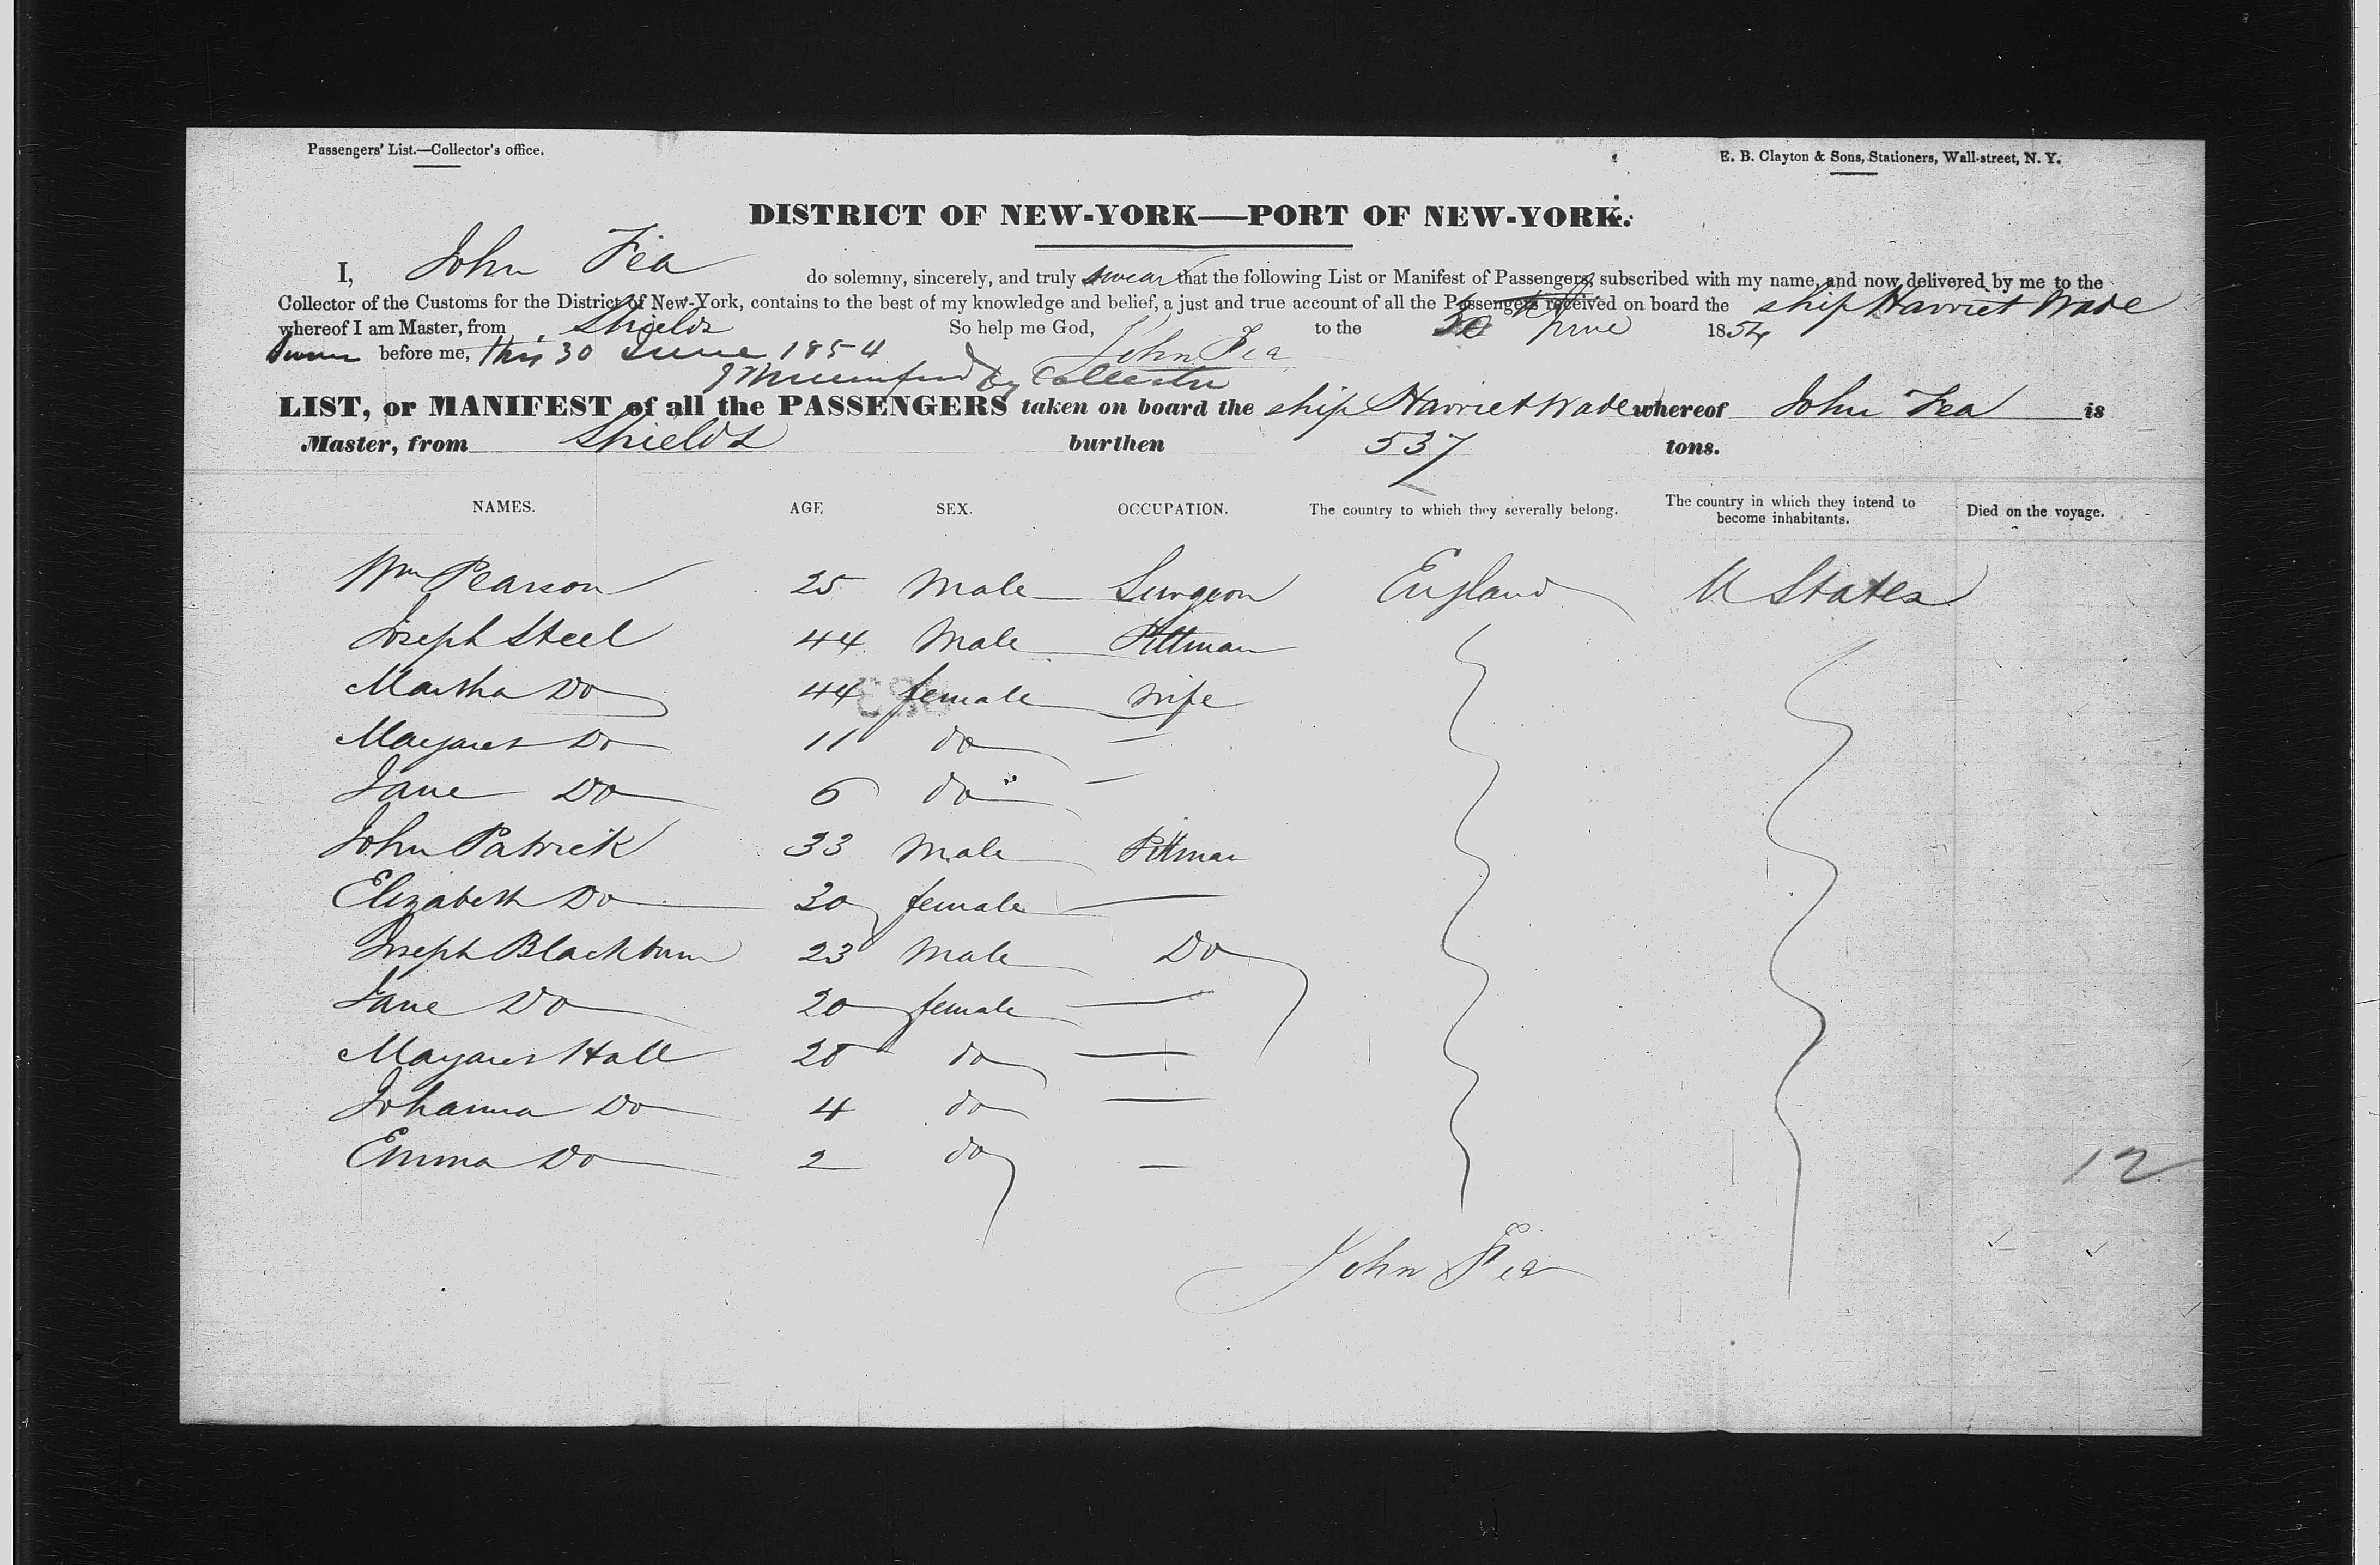 Passengers' List.—Collector's office.
E. B. Clayton & Sons, Stationers, Wall-street, N. Y.
DISTRICT OF NEW-YORK—PORT OF NEW-YORK.
I, John Fea do solemny, sincerely, and truly swear that the following List or Manifest of Passengers, subscribed with my name, and now delivered by me to the
Collector of the Customs for the District of New-York, contains to the best of my knowledge and belief, a just and true account of all the Passengers received on board the ship Harriet Wade
whereof I am Master, from Shields So help me God, to the 30 June 1854
Sworn before me, this 30 June 1854 John Fea
Dy Collector
LIST, or MANIFEST of all the PASSENGERS taken on board the ship Harriet Wade whereof John Fea is
Master, from Shields burthen 537 tons.
NAMES. AGE SEX. OCCUPATION. The country to which they severally belong. The country in which they intend to become inhabitants. Died on the voyage.
Wm Pearson 25 Male Surgeon England U States
Joseph Steel 44 Male Pittman
Martha Do 44 female wife
Margaret Do 11 do —
Jane Do 6 do —
John Patrick 33 Male Pittman
Elizabeth Do 30 female —
Joseph Blackburn 23 Male Do
Jane Do 20 female —
Margaret Hall 28 do —
Johanna Do 4 do —
Emma Do 2 do —
12
John Fea